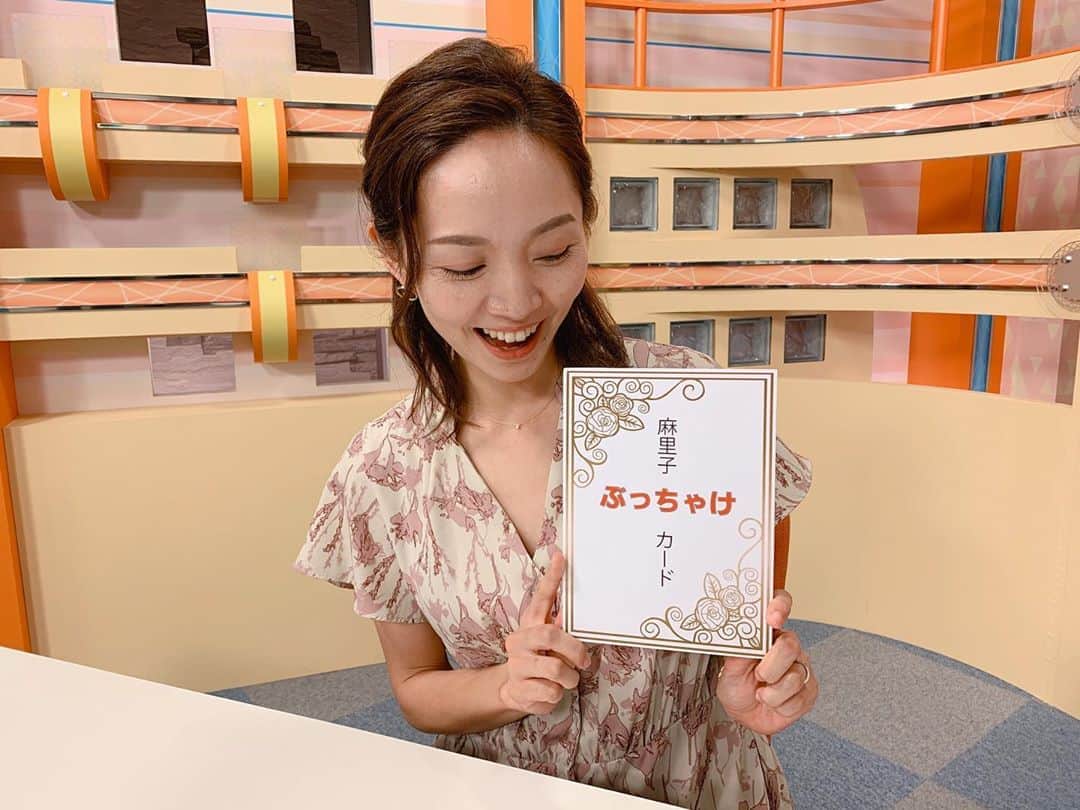 麻里子
ぶっちゃけ
カード